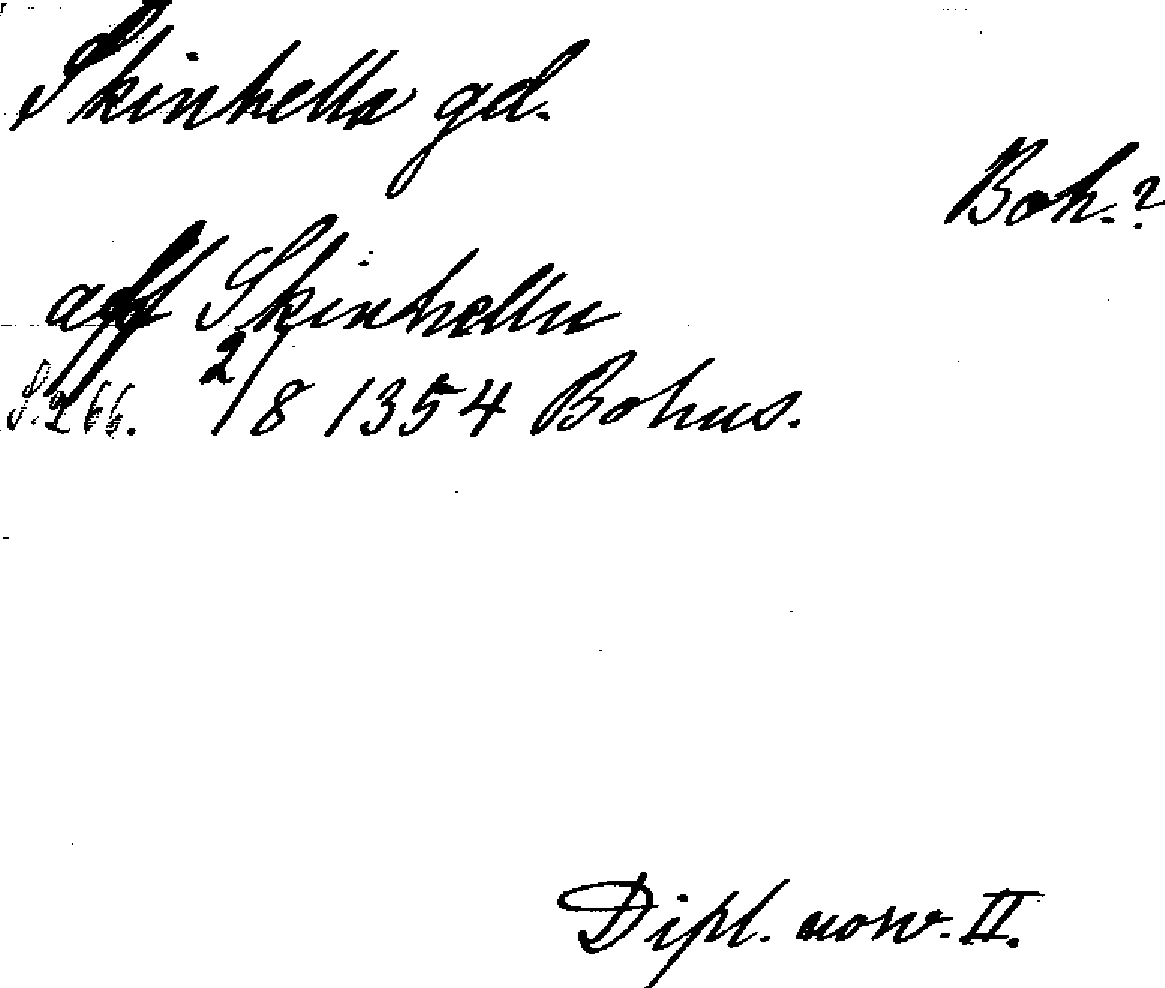 Skinhella gd.
Boh.?
aff Skinhellu
S. 266. 2/8 1354 Bohus.
Dipl. norv. II.